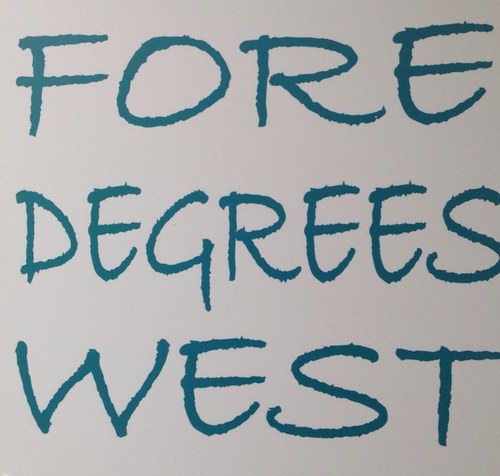 FORE
DEGREES
WEST